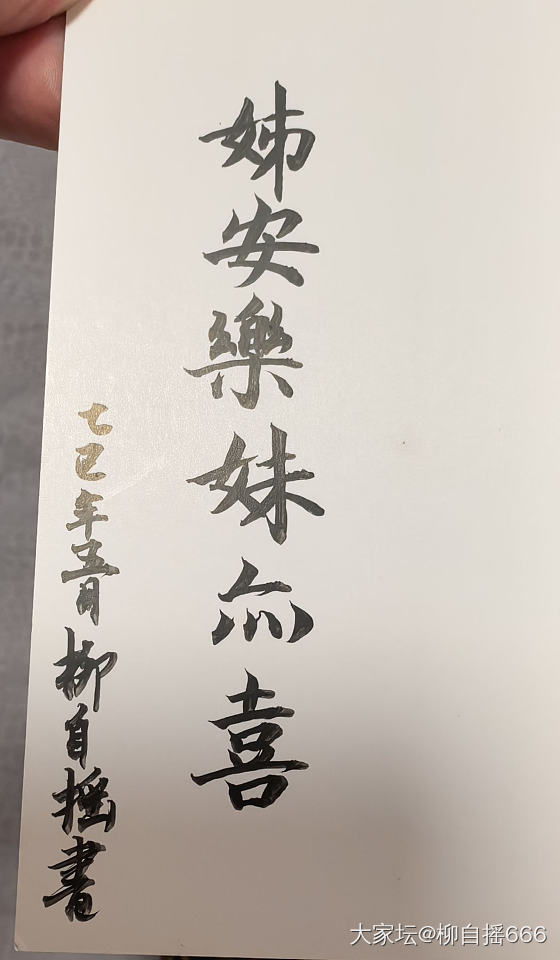 姊安樂妹亦喜
乙巳年五月柳自摇書
大家坛@柳自摇666